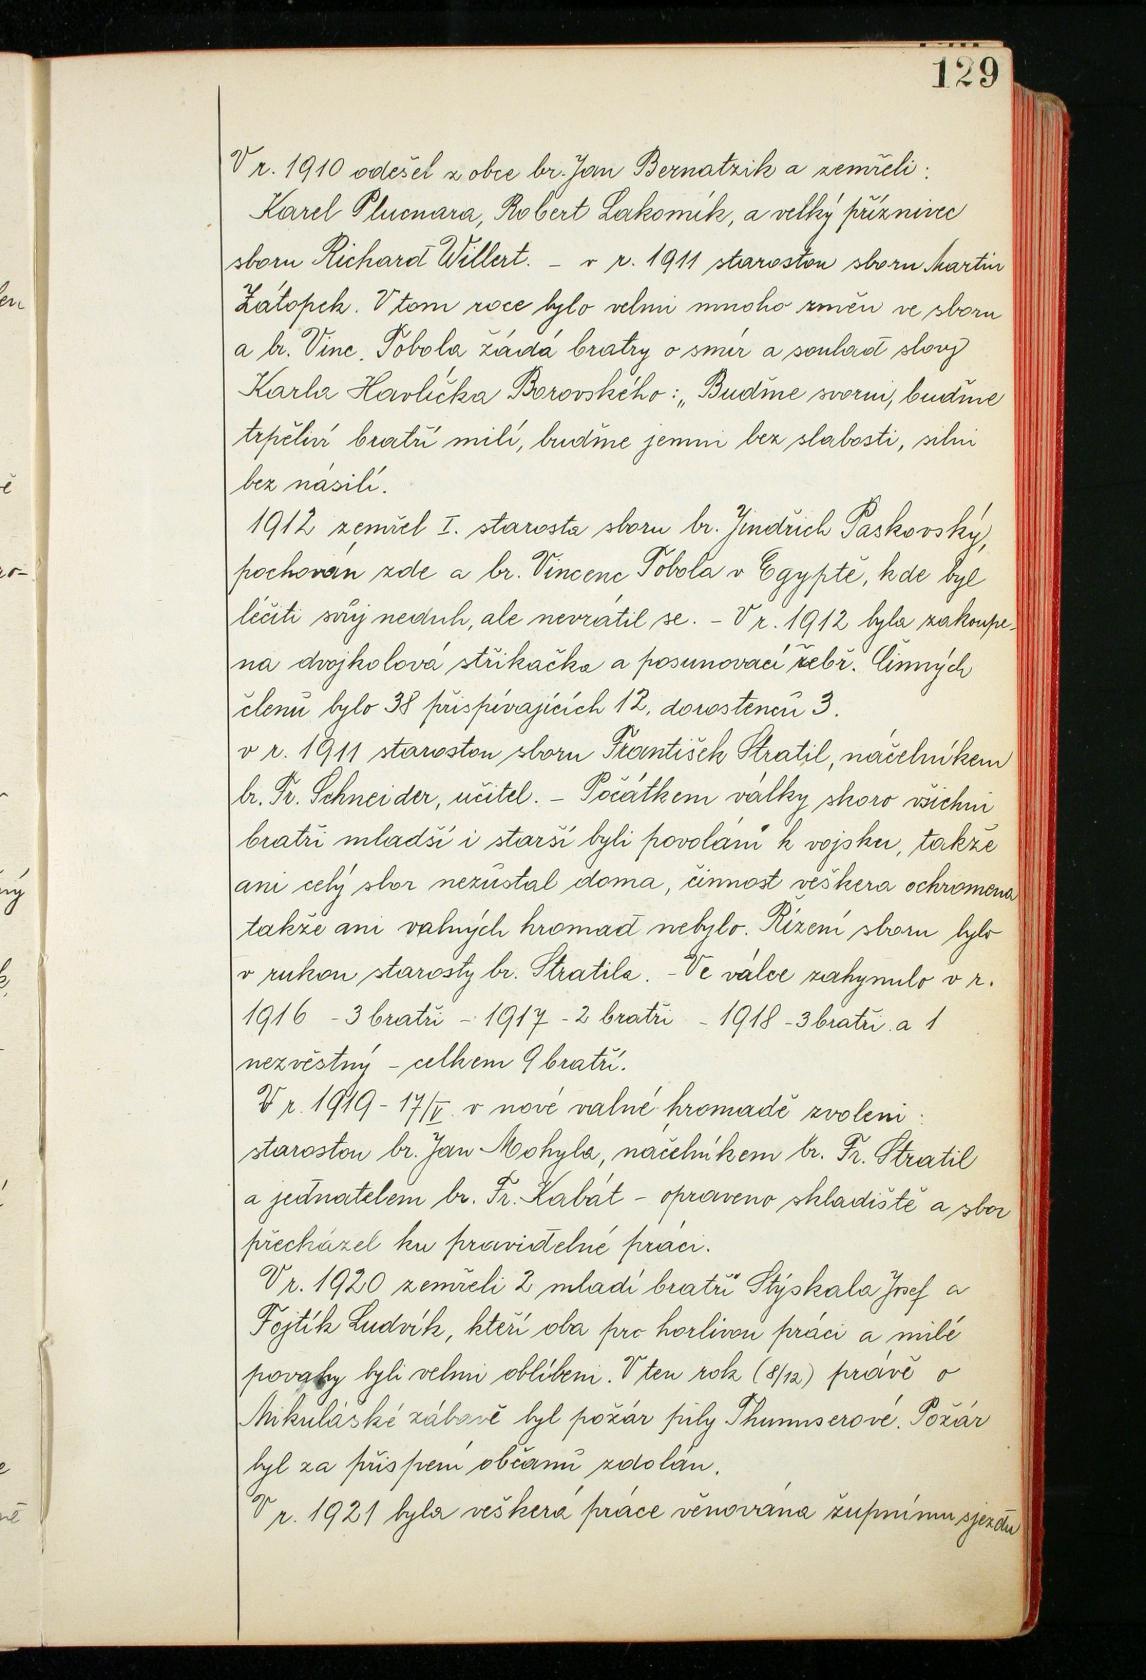 129
V r. 1910 odešel z obce br. Jan Bernatzik a zemřeli:
Karel Plucnara, Robert Lakomík, a velký příznivec
sboru Richard Willert. – v r. 1911 starostou sboru Martin
Zátopek. V tom roce bylo velmi mnoho změn ve sboru
a br. Vinc. Tobola žádá bratry o smír a soulad slovy
Karla Havlíčka Borovského: „Buďme svorni, buďme
trpěliví bratří milí, buďme jemni bez slabosti, silni
bez násilí.
1912 zemřel I. starosta sboru br. Jindřich Paskovský,
pochován zde a br. Vincenc Tobola v Egyptě, kde byl
léčiti svůj neduh, ale nevrátil se. – V r. 1912 byla zakoupe-
na dvojkolová stříkačka a posunovací žebř. Činných
členů bylo 38 přispívajících 12, dorostenců 3.
v r. 1911 starostou sboru František Stratil, náčelníkem
br. Fr. Schneider, učitel. – Počátkem války skoro všichni
bratři mladší i starší byli povoláni k vojsku, takže
ani celý sbor nezůstal doma, činnost veškera ochromena
takže ani valných hromad nebylo. Řízení sboru bylo
v rukou starosty br. Stratila. – Ve válce zahynulo v r.
1916 – 3 bratři – 1917 – 2 bratři – 1918 – 3 bratři a 1
nezvěstný – celkem 9 bratří.
V r. 1919 – 17/V. v nové valné hromadě zvoleni:
starostou br. Jan Mohyla, náčelníkem br. Fr. Stratil
a jednatelem br. Fr. Kabát – opraveno skladiště a sbor
přecházel ku pravidelné práci.
V r. 1920 zemřeli 2 mladí bratři Stýskala Josef a
Fojtík Ludvík, kteří oba pro horlivou práci a milé
povahy byli velmi oblíbeni. V ten rok (8/12) právě o
Mikulášské zábavě byl požár pily Thumserové. Požár
byl za přispení občanů zdolán.
V r. 1921 byla veškerá práce věnována župnímu sjezdu